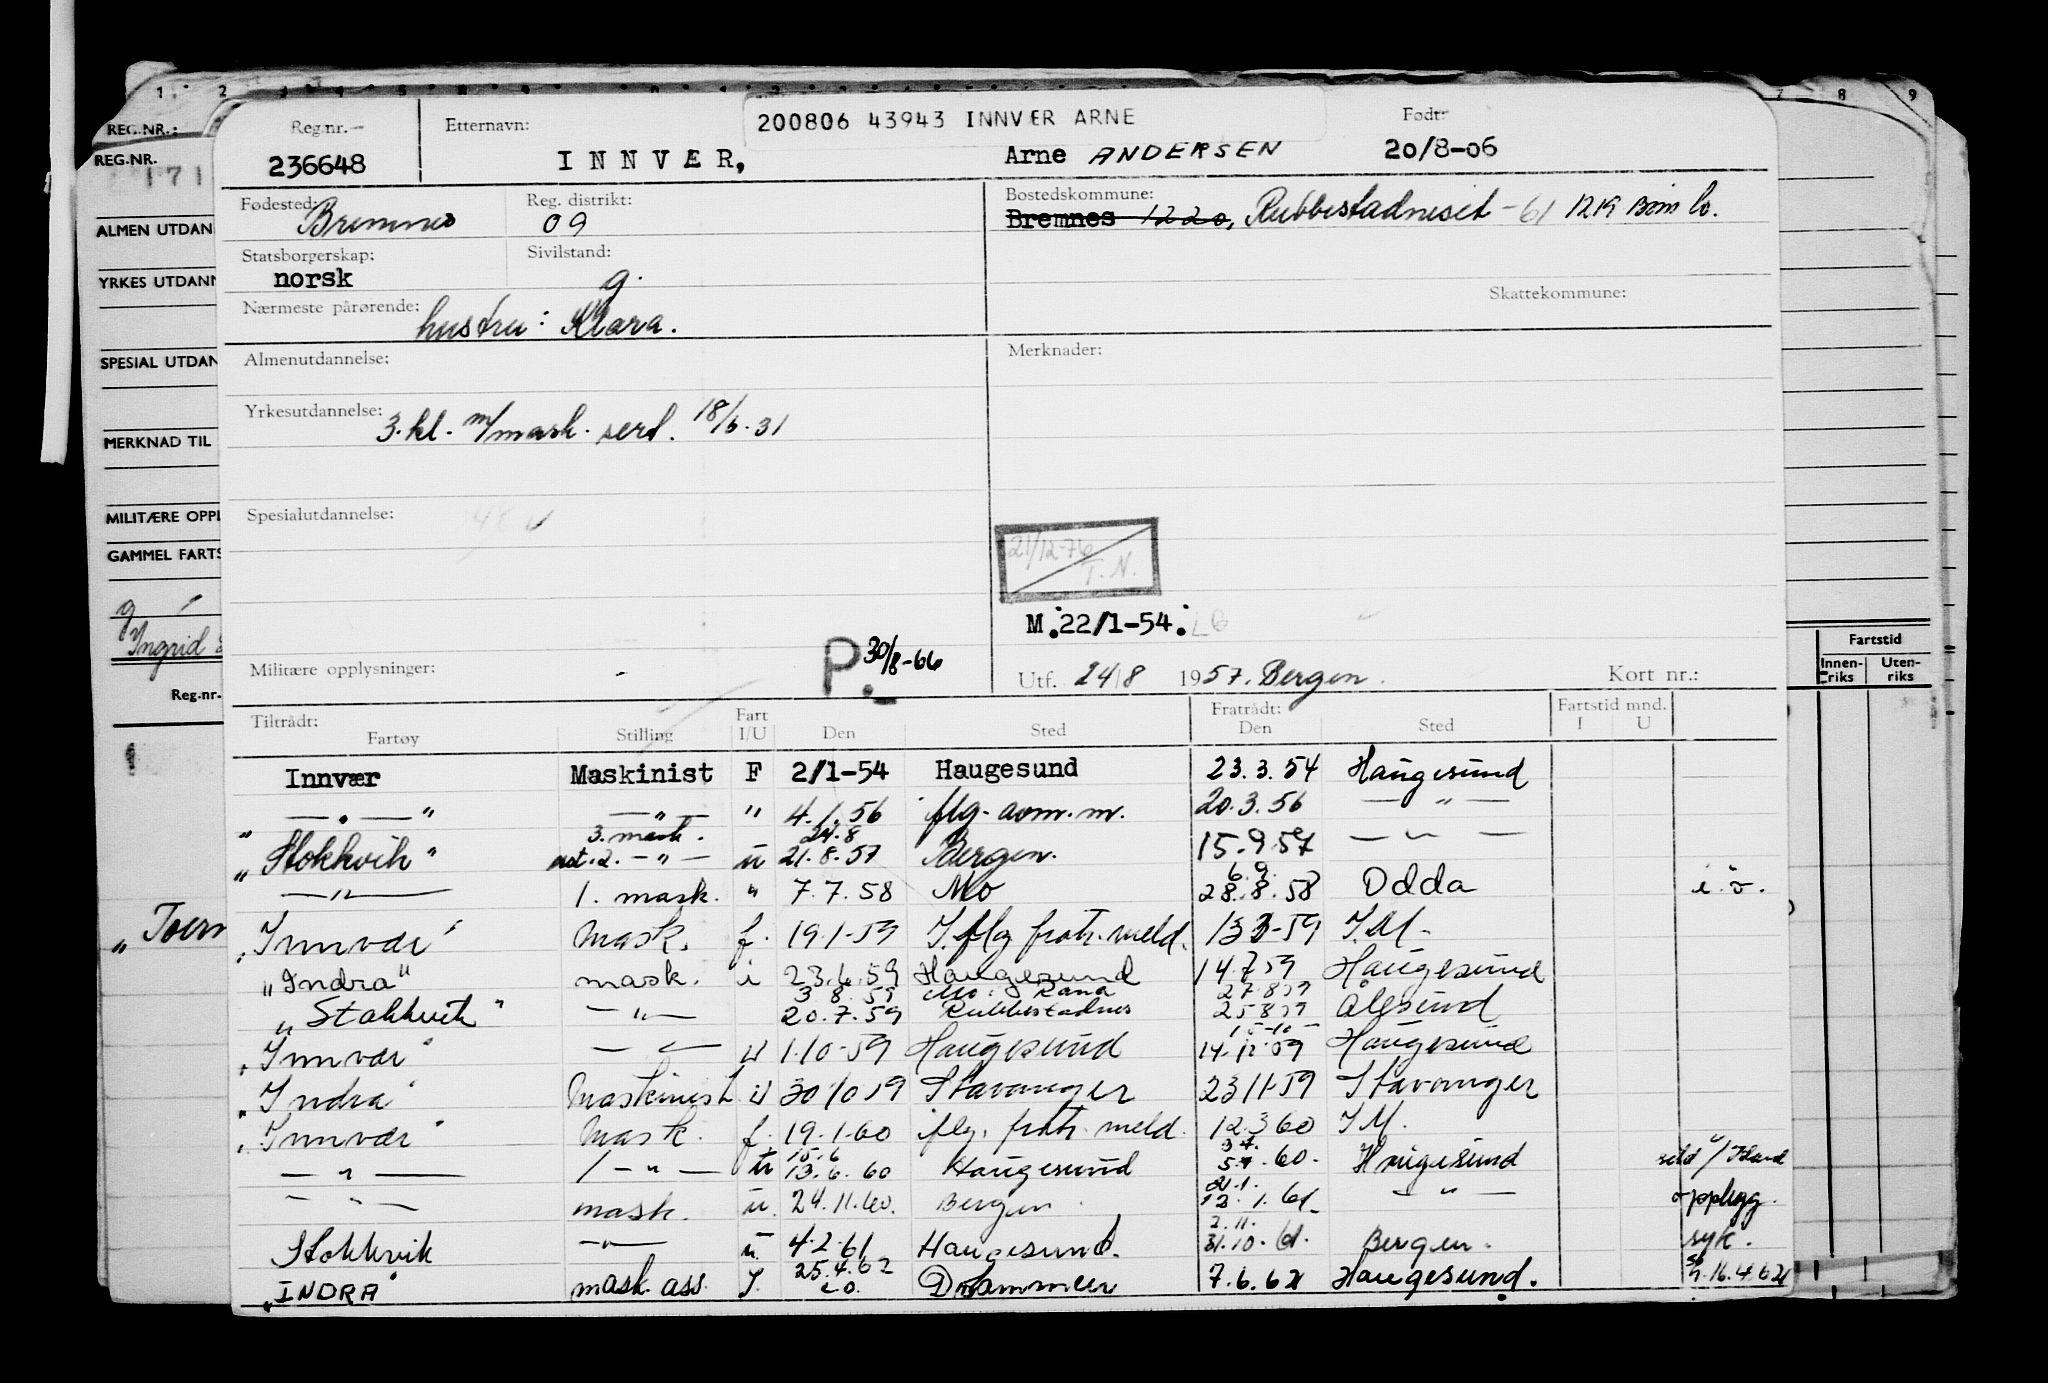 1 2 3 4 5 7 8 9
REG.NR.:
REG.NR.
171
ALMEN UTDAN
YRKES UTDANN
SPESIAL UTDAN
MERKNAD TIL
MILITÆRE OPPL
GAMMEL FARTS
g
Yngrid
Reg.nr.
Fartstid
Innen-riks Uten-riks
200806 43943 INNVÆR ARNE
Reg.nr. 236648
Etternavn: INNVÆR, Arne ANDERSEN
Født: 20/8-06
Fødested: Bremnes
Reg. distrikt: 09
Bostedskommune: Bremnes 1220, Rubbestadneset -61 1219 Bømlo.
Statsborgerskap: norsk
Sivilstand: g.
Skattekommune:
Nærmeste pårørende: hustru: Klara.
Almenutdannelse:
Merknader:
Yrkesutdannelse: 3.kl. m/mask. sert. 18/6.31
Spesialutdannelse:
21/12-76 T.N.
M.22/1-54.
P. 30/8-66
Militære opplysninger:
Utf. 24/8 1957. Bergen.
Kort nr.:
Tiltrådt: Fartøy Stilling Fart I/U Den Sted Fratrådt: Den Sted Fartstid mnd. I U
Innvær Maskinist F 2/1-54 Haugesund 23.3.54 Haugesund
" — . — " — " — " 4.1.56 iflg. avm.m. 20.3.56 — " —
3. mask. 24.8
"Stokkvik" ast.2. — " — u 21.8.57 Bergen. 15.9.57 — " —
6.9.
— " — 1. mask. " 7.7.58 Mo 28.8.58 Odda
"Innvær" Mask. f. 19.1-59 I.flg fratr.meld. 13 3-59 I.M.
"Indra" mask. i 23.6.59 Haugesund 14.7.59 Haugesund
3 8 59 Mo i Rana 27.8.59
"Stokkvik" — " — 20.7.59 Rubbestadnes 25 8 59 Ålesund
"Innvær" — " — U 1.10-59 Haugesund 14.12.59 Haugesund
"Indra" Maskinist U 30/10 59 Stavanger 23/11-59 Stavanger
"Innvær" Mask. f. 19.1-60 iflg. fratr. meld. 12.3 60 I.M.
15.6
— " — 1 — " — u 13.6.60 Haugesund 5.7.60. Haugesund sild v/Island
21.1.
— " — mask. u. 24.11.60. Bergen 12.1.61 — " — opplegg.
2.11.
Stokkvik — " — u. 4.2.61 Haugesund. 31.10.61. Bergen. syk.
"INDRA" mask. ass. I. 25.4.62 Drammen 7.6.62 Haugesund.